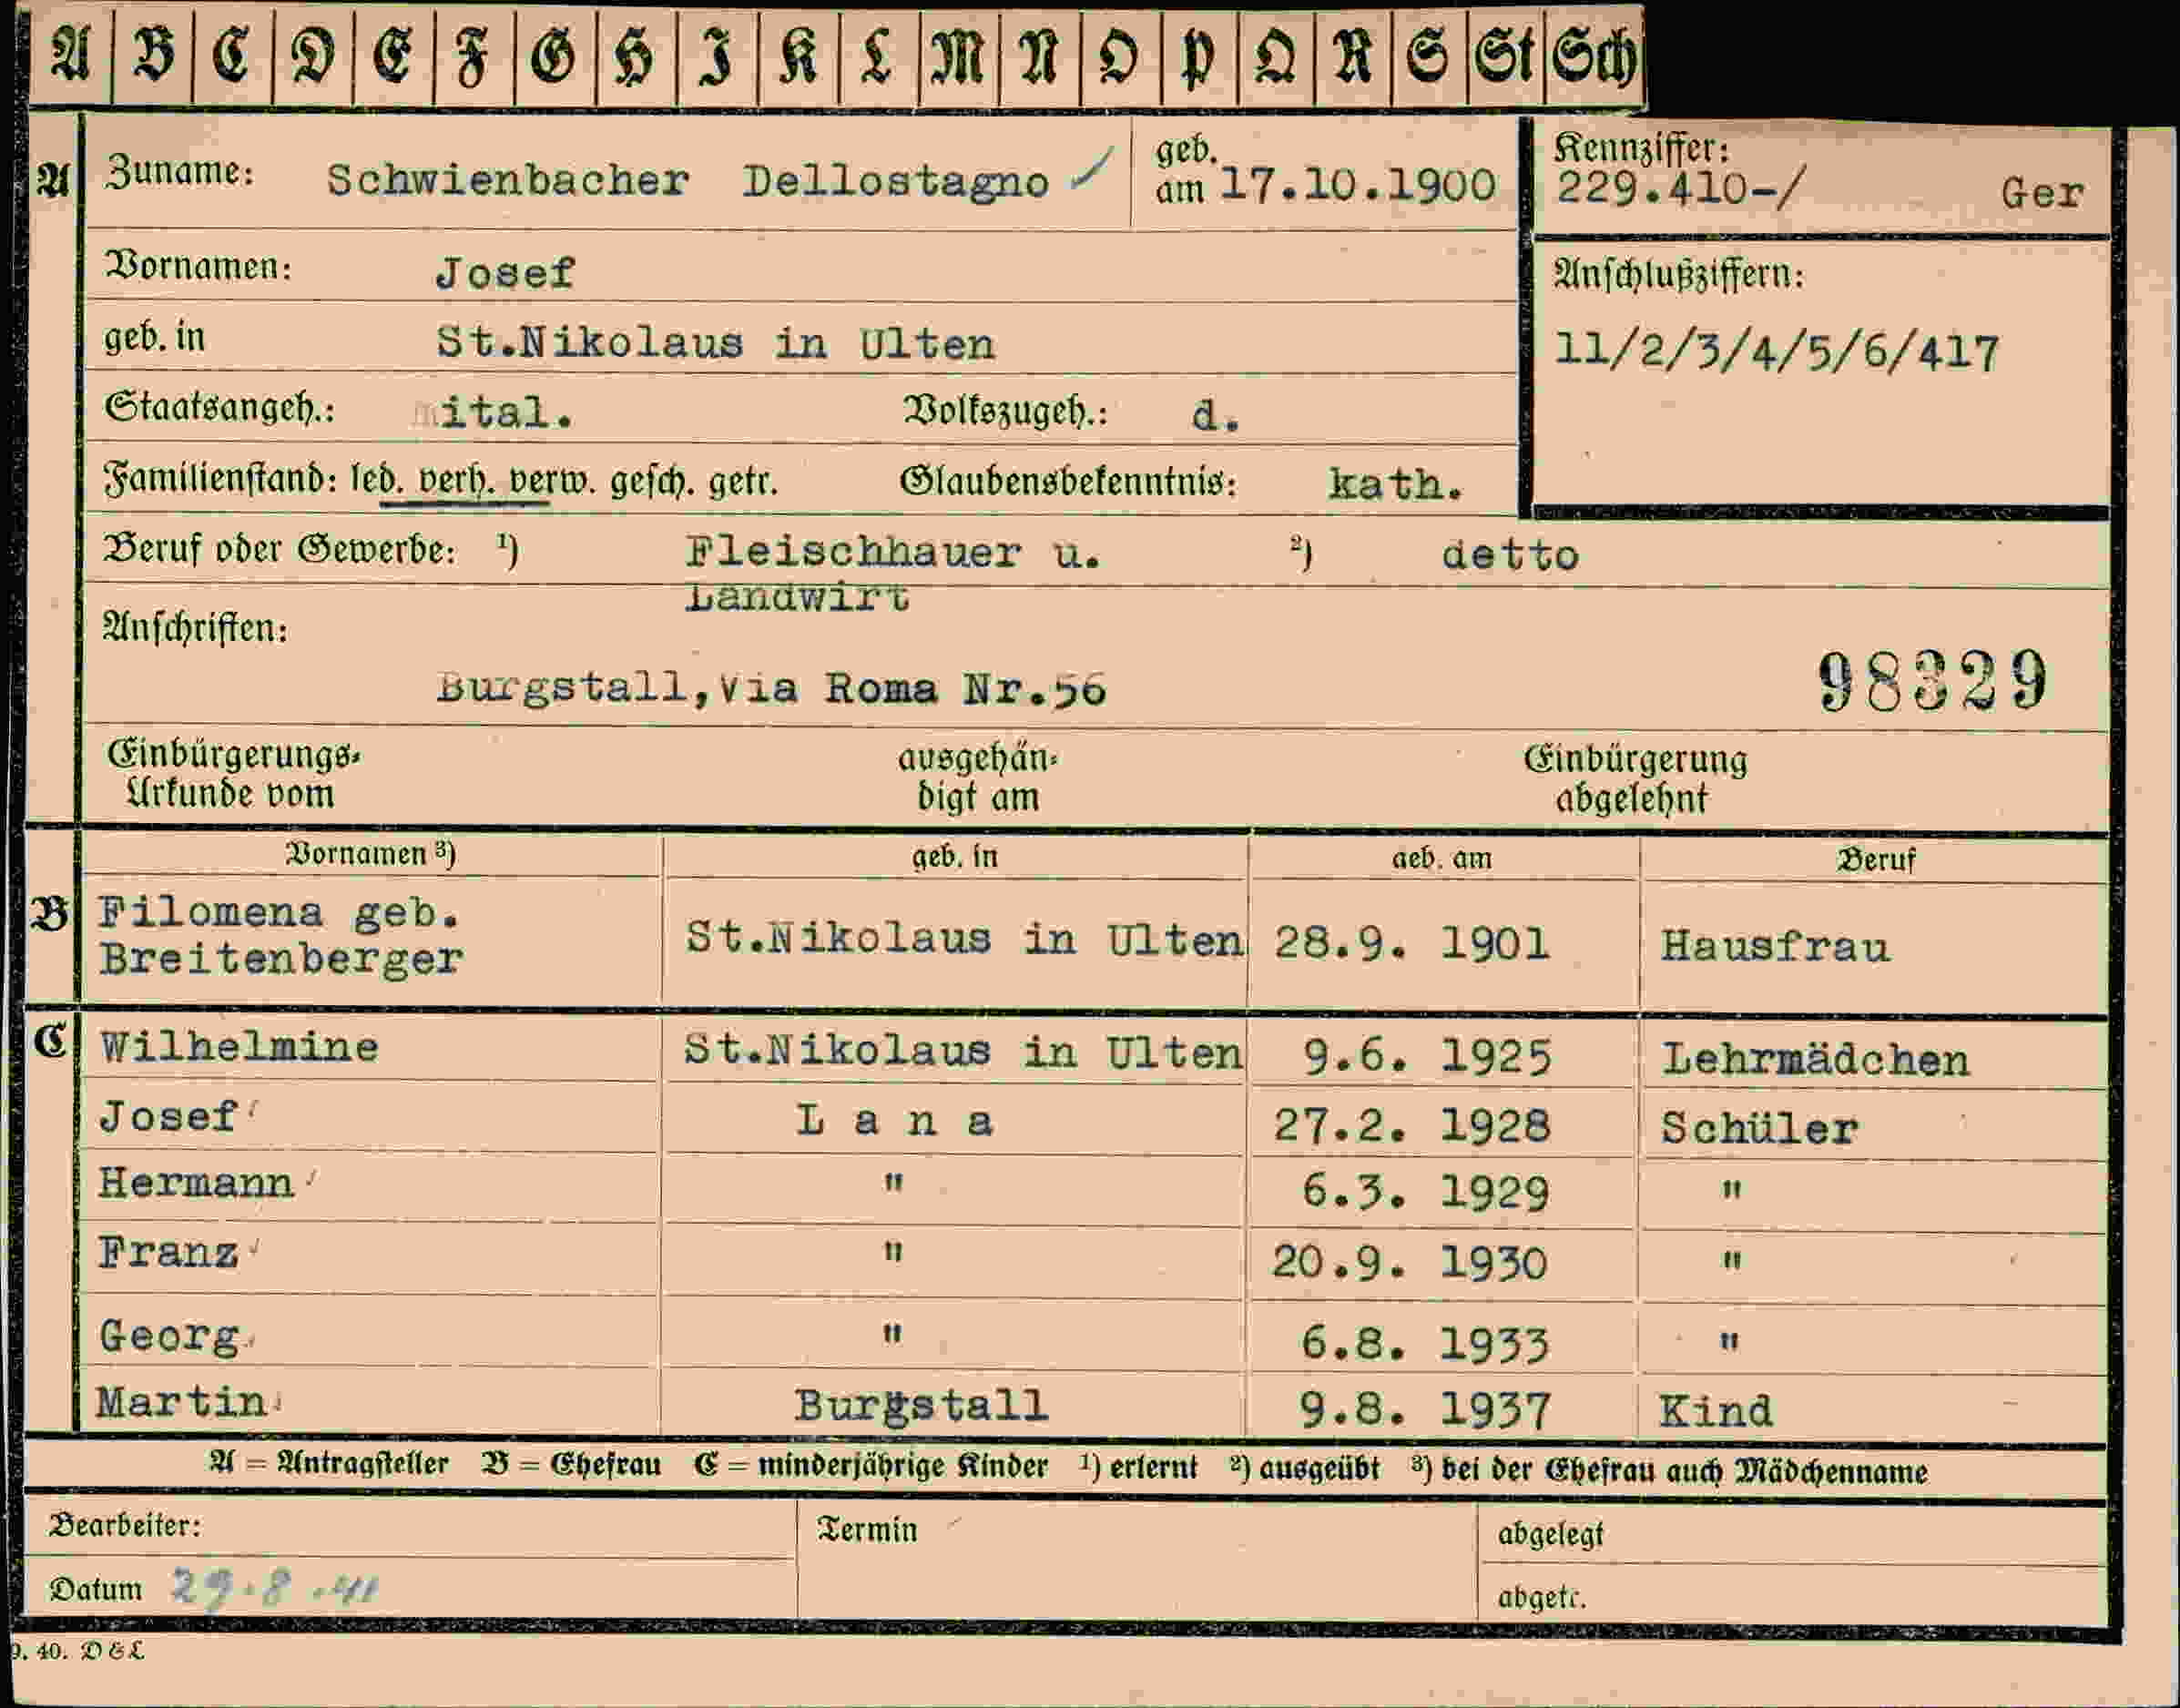 A B C D E F G H I K L M N O P Q R S St Sch
A Zuname: Schwienbacher Dellostagno geb. am 17.10.1900
Kennziffer:
229.410-/ Ger
Vornamen: Josef
Anschlußziffern:
geb. in St.Nikolaus in Ulten
11/2/3/4/5/6/417
Staatsangeh.: ital. Volkszugeh.: d.
Familienstand: led. verh. verw. gesch. getr. Glaubensbekenntnis: kath.
Beruf oder Gewerbe: ¹) Fleischhauer u. ²) detto
Landwirt
Anschriften:
Burgstall,Via Roma Nr.56 98329
Einbürgerungs- ausgehän- Einbürgerung
Urkunde vom digt am abgelehnt
Vornamen ³) geb. in geb. am Beruf
B Filomena geb.
Breitenberger St.Nikolaus in Ulten 28.9. 1901 Hausfrau
C Wilhelmine St.Nikolaus in Ulten 9.6. 1925 Lehrmädchen
Josef L a n a 27.2. 1928 Schüler
Hermann " 6.3. 1929 "
Franz " 20.9. 1930 "
Georg " 6.8. 1933 "
Martin Burgstall 9.8. 1937 Kind
A = Antragsteller B = Ehefrau C = minderjährige Kinder ¹) erlernt ²) ausgeübt ³) bei der Ehefrau auch Mädchenname
Bearbeiter: Termin abgelegt
Datum 29.8.41 abgetr.
9. 40. D & L